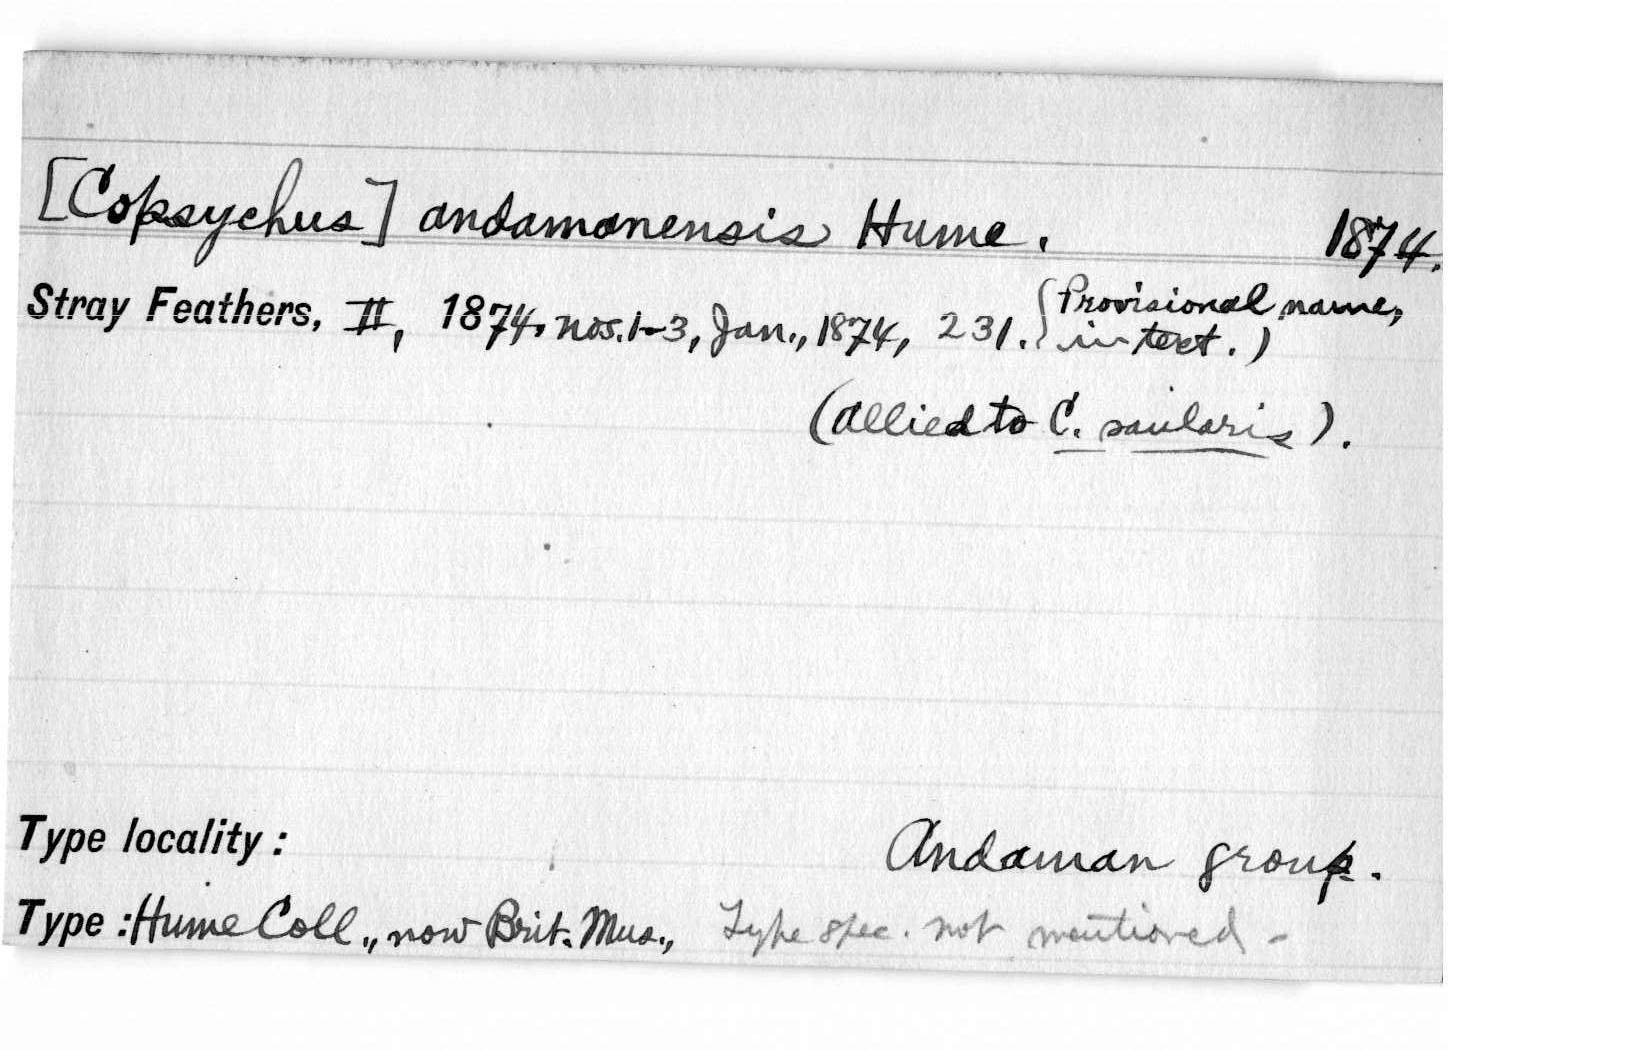 [Copsychus] andamanensis Hume. 1874.
Stray Feathers, II, 1874, nos. 1-3, Jan., 1874, 231. (Provisional name,
in text.)
(allied to C. saularis).
Type locality: Andaman group.
Type: Hume Coll., now Brit. Mus., Type spec. not mentioned -